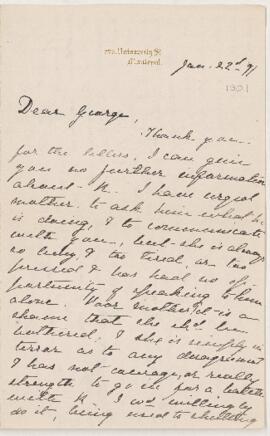 University St
Montreal.
Jan. 22d 91
1891
Dear George,
Thank you
for the letters. I can give
you no further information
about - . I have urged
mother to ask him what he
is doing, & to communicate
with you, but she is always
so busy, & too tired, or too
& has had no op-
portunity of speaking to him
alone. Poor mother it is a
shame that she shd be
bothered, & she is simply in
terror as to any disagreement
& has not courage, or really
strength to go in for a battle
with . I wd willingly
do it, being used to